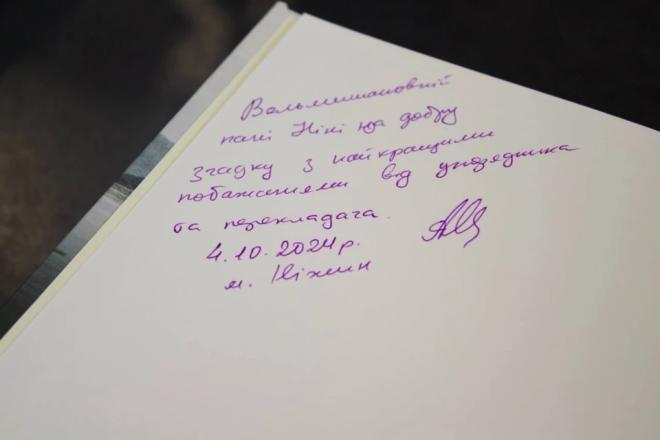 Вельмишановній
пані Ніні на добру
згадку з найкращими
побажаннями від упорядника
та перекладача.
4.10.2024р.
м. Ніжин